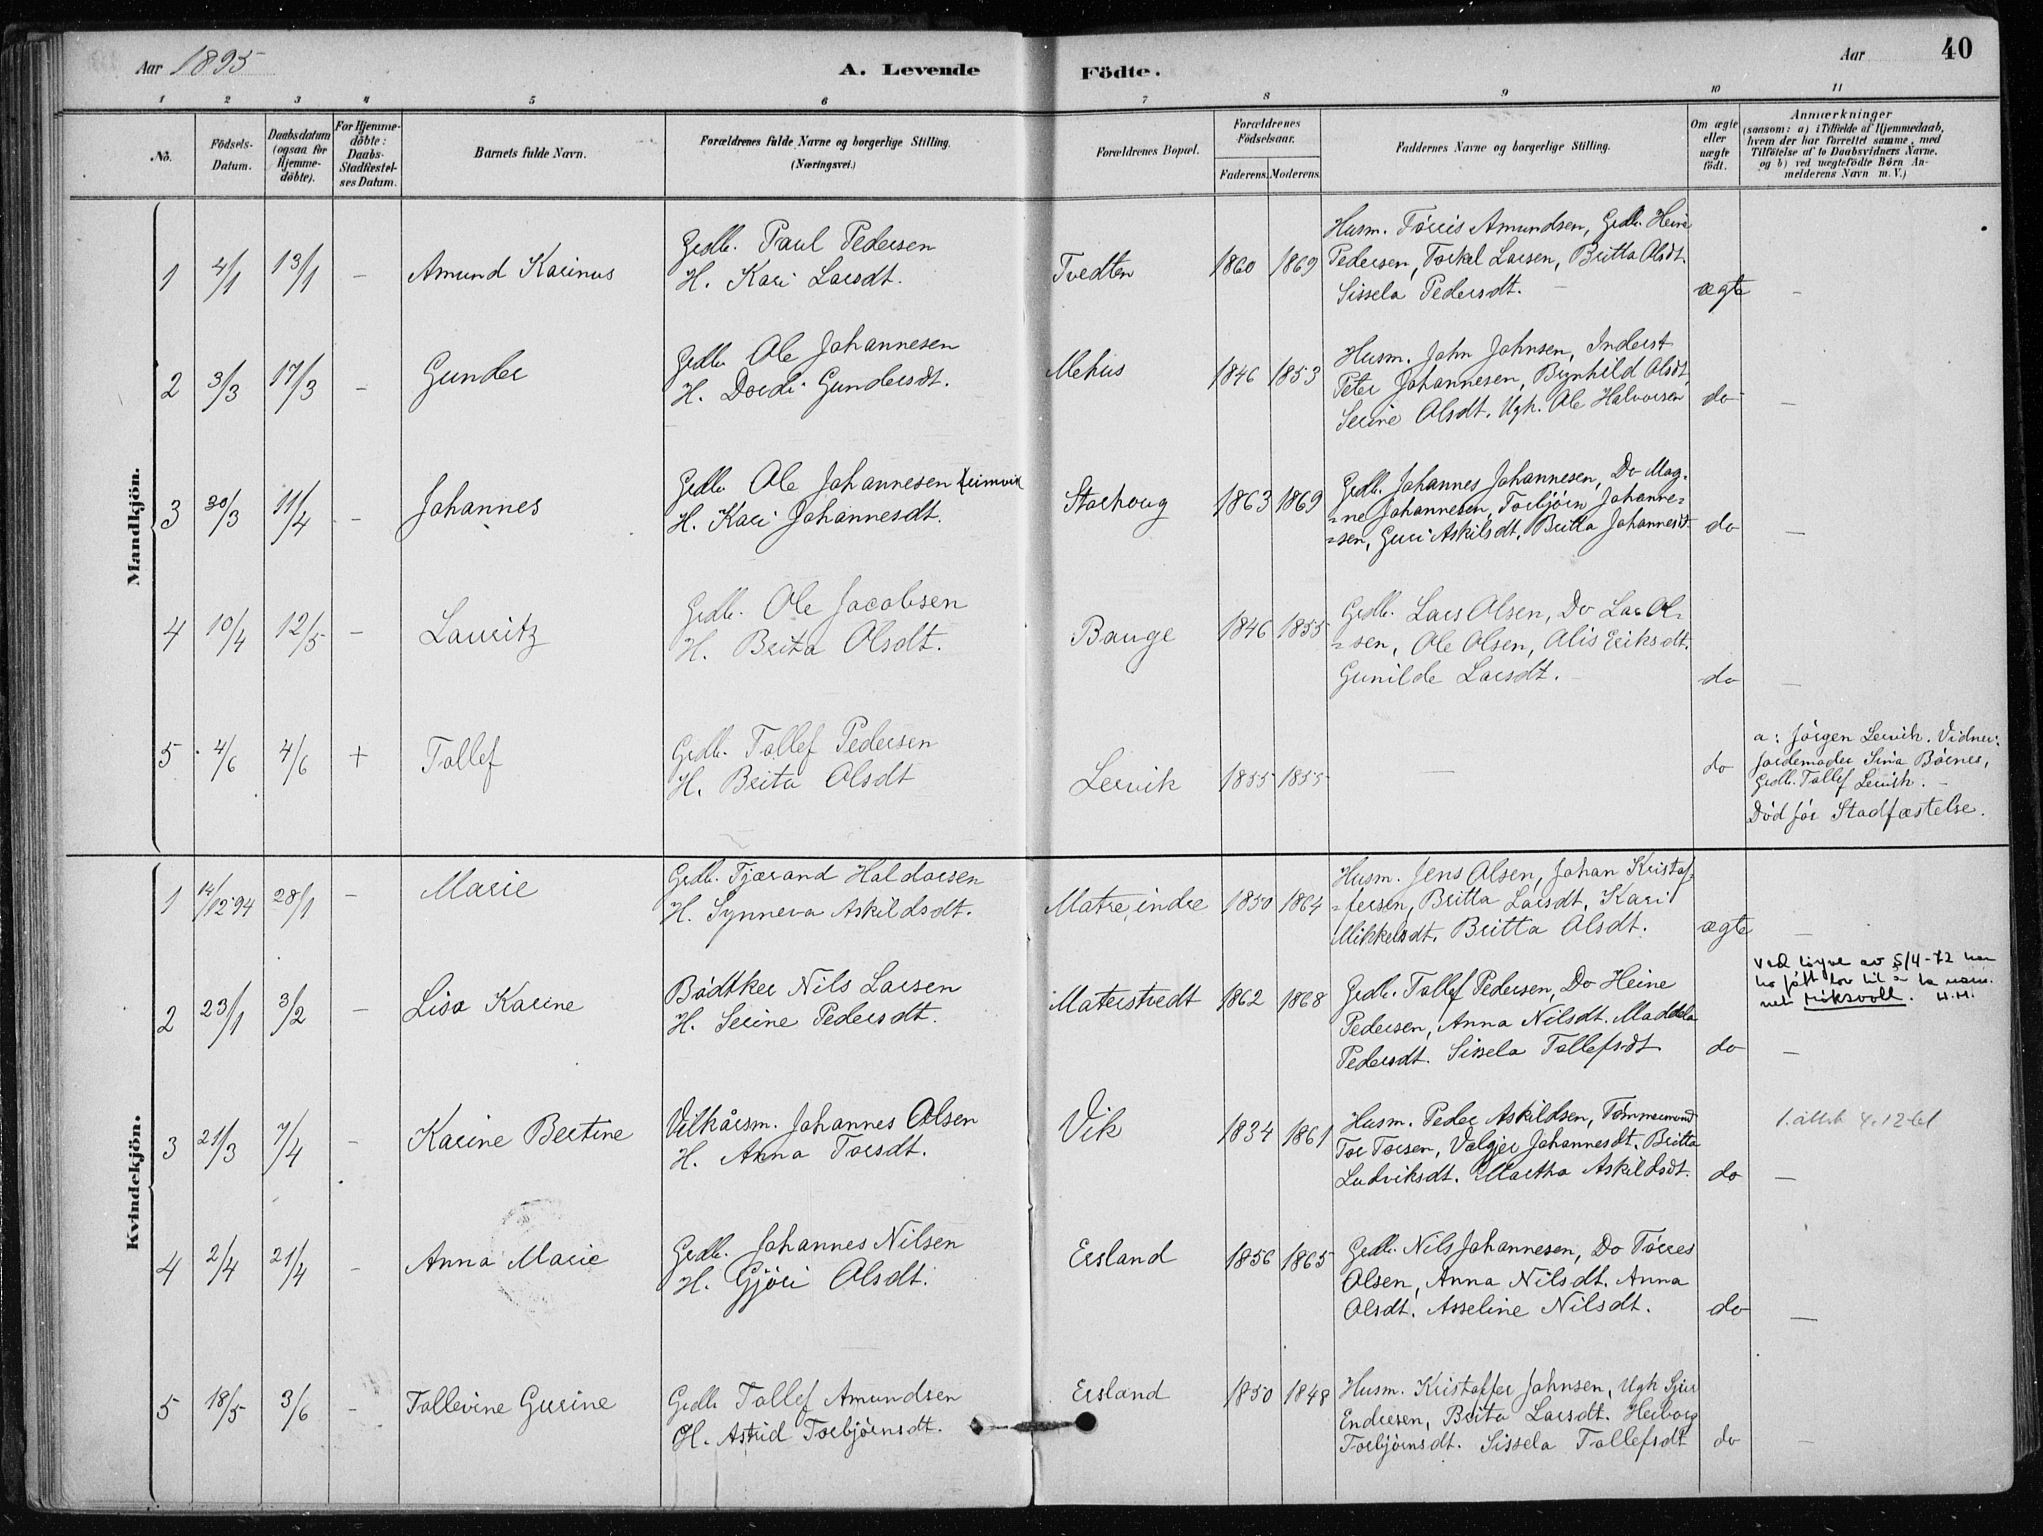 Aar 1895
A. Levende
Födte.
Aar
40
1 2 3 4 5 6 7 8 9 10 11
No.
Födsels-
Datum.
Daabsdatum
(ogsaa for
Hjemme-
döbte).
For Hjemme-
döbte:
Daabs-
Stadfæstel-
ses Datum.
Barnets fulde Navn.
Forældrenes fulde Navne og borgerlige Stilling.
(Næringsvei.)
Forældrenes Bopæl.
Forældrenes
Födselsaar.
Faderens. Moderens.
Faddernes Navne og borgerlige Stilling.
Om ægte
eller
uægte
födt.
Anmærkninger
(saasom: a) i Tilfælde af Hjemmedaab,
hvem der har forrettet samme, med
Tilföielse af to Daabsvidners Navne,
og b) ved uægtefödte Börn An-
melderens Navn m. V.)
Mandkjön.
1 4/1 13/1 – Amund Karinus
Grdb. Paul Pedersen
H. Kari Larsdt.
Tvedten 1860 1869
Husm. Tórris Amundsen, Grdb. Heine
Pedersen, Torkel Larsen, Britta Olsdt.
Sissela Pedersdt. –
ægte –
2 3/3 17/3 – Gunder
Grdb. Ole Johannesen
H. Dordi Gundersdt.
Mehus 1846 1853
Husm. John Johnsen, Inderst
Peter Johannesen, Brynhild Olsdt,
Serine Olsdt. Ugk. Ole Halvorsen
do –
3 30/3 11/4 – Johannes
Grdb. Ole Johannesen Leirvik
H. Kari Johannesdt.
Storhoug 1863 1869
Grdb. Johannes Johannesen, Do Mag-
=ne Johannesen, Torbjörn Johanne=
=sen, Guri Askilsdt, Britta Johannesdt
do –
4 10/4 12/5 – Lauritz
Grdb. Ole Jacobsen
H. Brita Olsdt.
Bauge 1846 1855
Grdb. Lars Olsen, Do Lar Ol-
=sen, Ole Olsen, Alis Eriksdt.
Gunilde Larsdt. –
do –
5 4/6 4/6 + Tollef
Grdb. Tollef Pedersen
H. Brita Olsdt
Lervik 1855 1855
–
do
a: Jörgen Lervik. Vidner:
Jordemoder Sina Börnes,
Grdb. Tollef Lervik. –
Död för Stadfæstelse.
Kvindekjön.
1 14/12 94 28/1 – Marie
Grdb. Tjærand Haldorsen
H. Synneva Askildsdt.
Matre, indre 1850 1864
Husm. Jens Olsen, Johan Kristof-
=fersen, Britta Larsdt, Kari
Mikkelsdt, Britta Olsdt.
ægte –
2 23/1 3/2 – Lisa Karine
Bödtker Nils Larsen
H. Serine Pedersdt.
Materstvedt 1862 1868
Grdb. Tollef Pedersen, Do Heine
Pedersen, Anna Nilsdt. Maddela
Pedersdt. Sissela Tollefsdt.
do –
Ved löyve av 5/4-72 har
ho fått lov til å ta nam-
net Miksvoll. H.H.
3 21/3 7/4 – Karine Bertine
Vilkårsm. Johannes Olsen
H. Anna Torsdt.
Vik 1834 1861
Husm. Peder Askildsen, Tömmermand
Tor Torsen, Valgjer Johannesdt. Britta
Ludviksdt. Martha Askildsdt.
do –
1. attest 4.12-61
4 2/4 21/4 – Anna Marie
Grdb. Johannes Nilsen
H. Gjöri Olsdt.
Ersland 1856 1865
Grdb. Nils Johannesen, Do Tórres
Olsen, Anna Nilsdt. Anna
Olsdt. Asseline Nilsdt.
do –
5 18/5 3/6 – Tollevine Gurine
Grdb Tollef Amundsen
H. Astrid Torbjörnsdt.
Ersland 1850 1848
Husm. Kristoffer Johnsen, Ugk Sjur
Endresen, Brita Larsdt. Herborg
Torbjörnsdt. Sissela Tollefsdt
do –